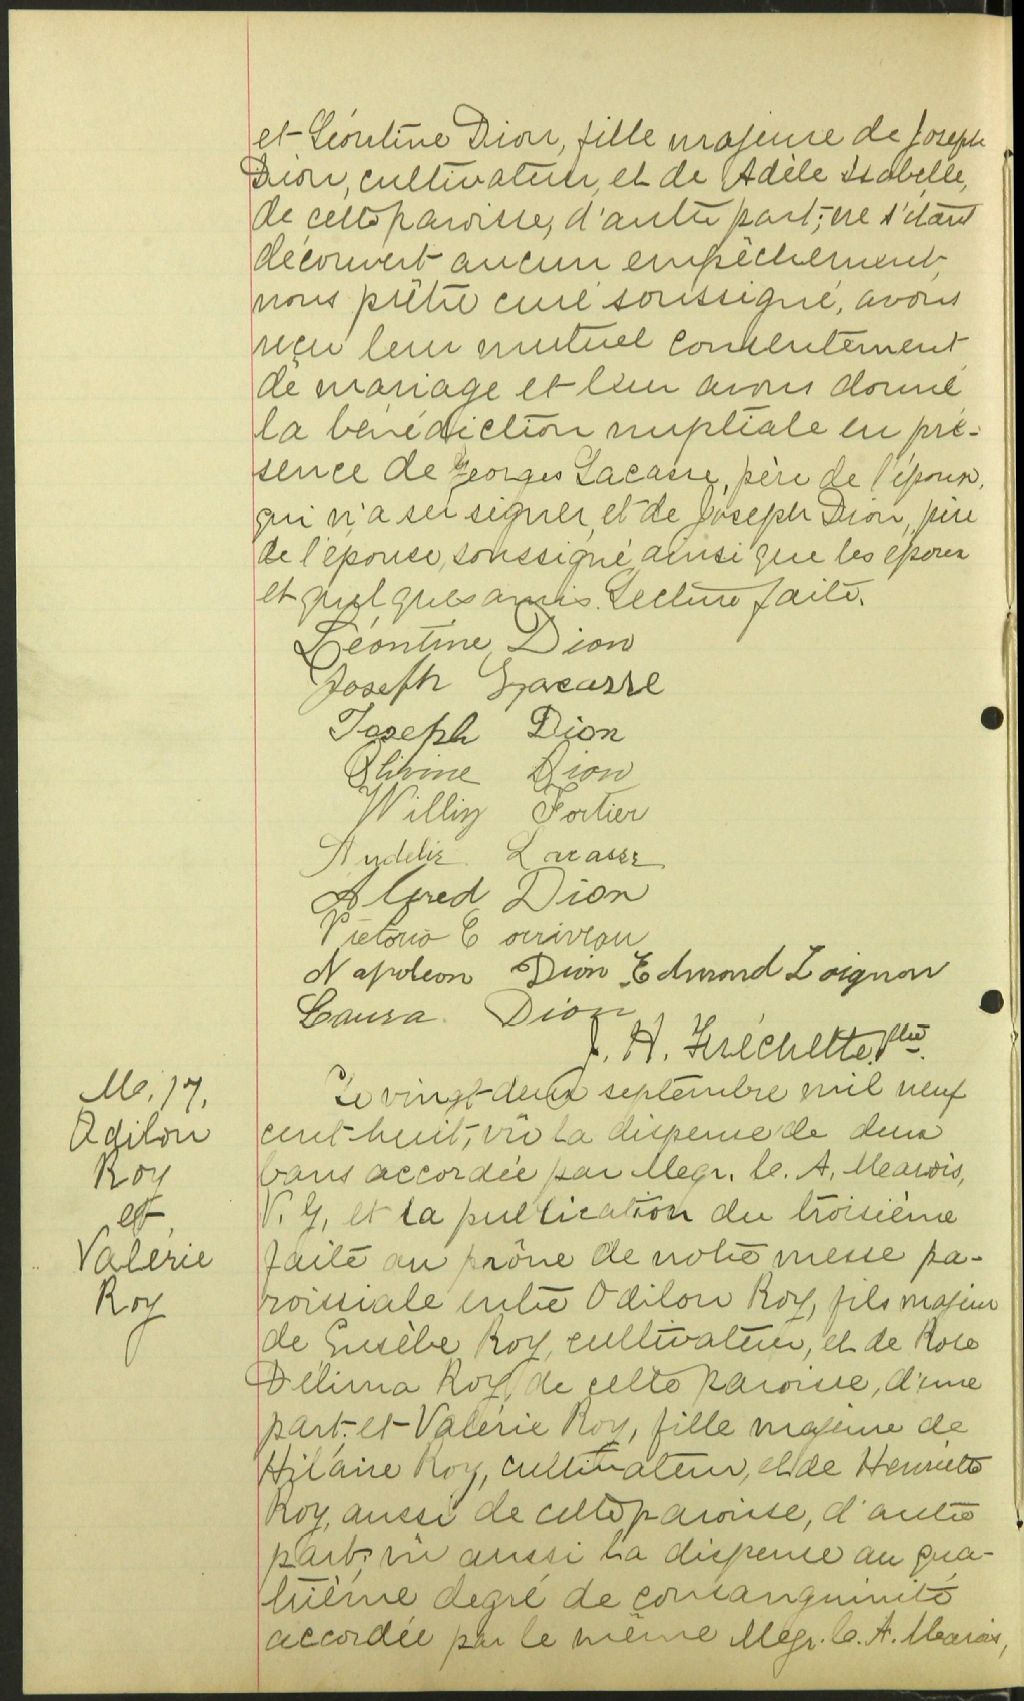 et Léontine Dion, fille majeure de Joseph
Dion, cultivateur, et de Adèle Isabelle,
de cette paroisse, d'autre part; ne s'étant
découvert aucun empêchement,
nous prêtre curé soussigné, avons
reçu leur mutuel consentement
de mariage et leur avons donné
la bénédiction nuptiale en pré-
sence de Georges Lacasse, père de l'époux,
qui n'a su signer, et de Joseph Dion, père
de l'épouse, soussigné, ainsi que les époux
et quelques amis. Lecture faite.
Léontine Dion
Joseph Lacasse
Joseph Dion
Olivine Dion
Willis Fortier
Lacasse
Alfred Dion
Victoria Corriveau
Napoleon Dion Edmond Loignon
Laura Dion
J. H. Fréchette, Ptre.
M. 17.
Odilon
Roy
et
Valérie
Roy
Le vingt-deux septembre mil neuf
cent huit, vû la dispense de deux
bans accordée par Megr. C. A. Marois,
V. G. et la publication du troisième
faite au prône de notre messe pa-
roissiale entre Odilon Roy, fils majeur
de Eusèbe Roy, cultivateur, et de Rose
Délima Roy, de cette paroisse, d'une
part; et Valérie Roy, fille majeure de
Hilaire Roy, cultivateur, et de Henriette
Roy, aussi de cette paroisse, d'autre
part; vû aussi la dispense au qua-
trième degré de consanguinité
accordée par le même Megr. C. A. Marois,